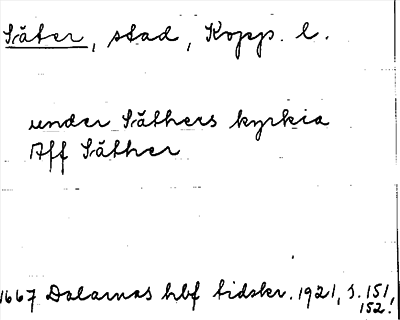 Säter, stad, Kopp. l.
under Säthers kyrkia
Aff Säther
1667 Dalarnas hbf tidskr. 1921, s. 151,
152.